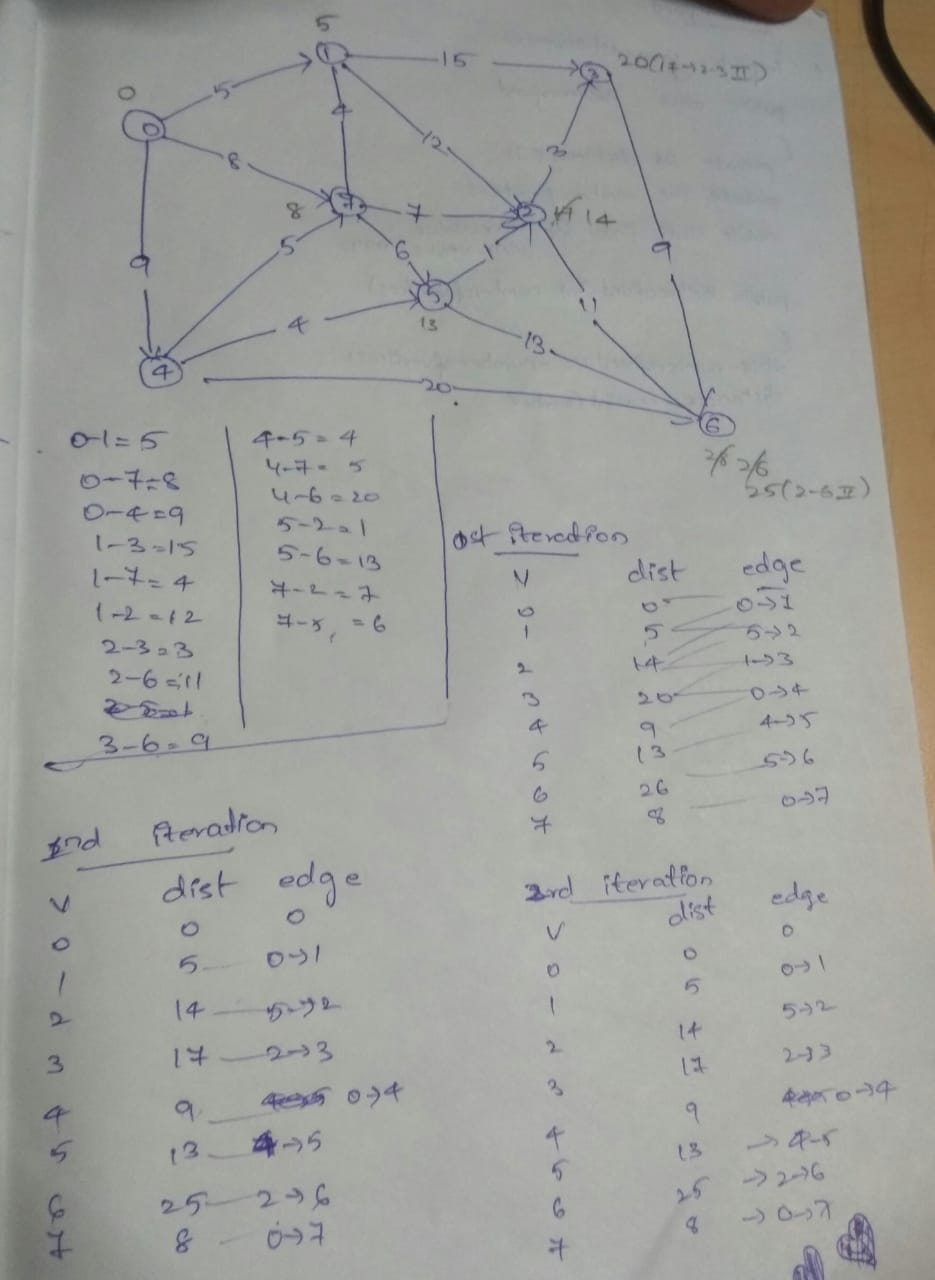 5
0
1
15
3
20(17→2-3 II)
5
0
4
12
8
3
8
7
7
2
14
9
5
6
1
9
5
13
11
4
13
4
20
6
26 26
25(2-6 II)
0-1=5
0-7=8
0-4=9
1-3=15
1-7=4
1-2=12
2-3=3
2-6=11
2-5=1
3-6=9
4-5=4
4-7=5
4-6=20
5-2=1
5-6=13
7-2=7
7-5, =6
1st iteration
V dist edge
0 0 0→1
1 5 5→2
2 14 1→3
3 20 0→4
4 9 4→5
5 13 5→6
6 26 0→7
7 8
2nd iteration
V dist edge
0 0 0
1 5 0→1
2 14 5→2
3 17 2→3
4 9 0→4
5 13 4→5
6 25 2→6
7 8 0→7
3rd iteration
V dist edge
0 0 0
1 5 0→1
2 14 5→2
3 17 2→3
4 9 0→4
5 13 →4-5
6 25 →2→6
7 8 →0→7